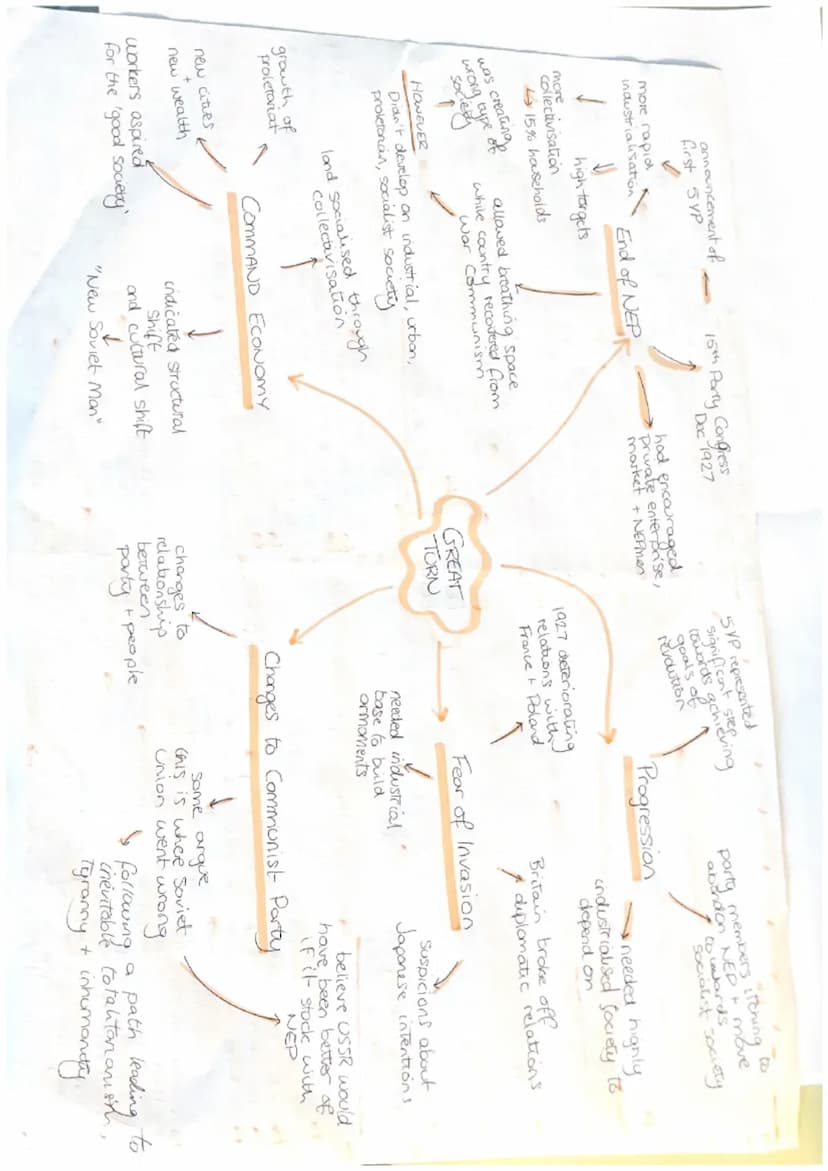 GREAT
TURN
End of NEP
15th Party Congress
Dec 1927
announcement of
first 5YP
more rapid
industrialisation
high targets
more
collectivisation
↳ 15% households
had encouraged
private enterprise,
market + NEPmen
allowed breathing space
while country recovered from
War Communism
HOWEVER
Didn't develop an industrial, urban,
proletarian, socialist society
was creating
wrong type of
society
Progression
5YP represented
significant step
towards achieving
goals of
revolution
party members itching to
abandon NEP + move
towards
socialist society
needed highly
industrialised society to
depend on
Fear of Invasion
1927 deteriorating
relations with
France + Poland
Britain broke off
diplomatic relations
suspicions about
Japanese intentions
needed industrial
base to build
armaments
Changes to Communist Party
changes to
relationship
between
party + people
some argue
this is where Soviet
Union went wrong
following a path leading to
inevitable totalitarianism,
tyranny + inhumanity
believe USSR would
have been better of
if it stock with
NEP
COMMAND ECONOMY
land socialised through
collectivisation
growth of
proletariat
new cities
+
new wealth
workers aspired
for the 'good society'
indicated structural
shift
and cultural shift
"New Soviet Man"